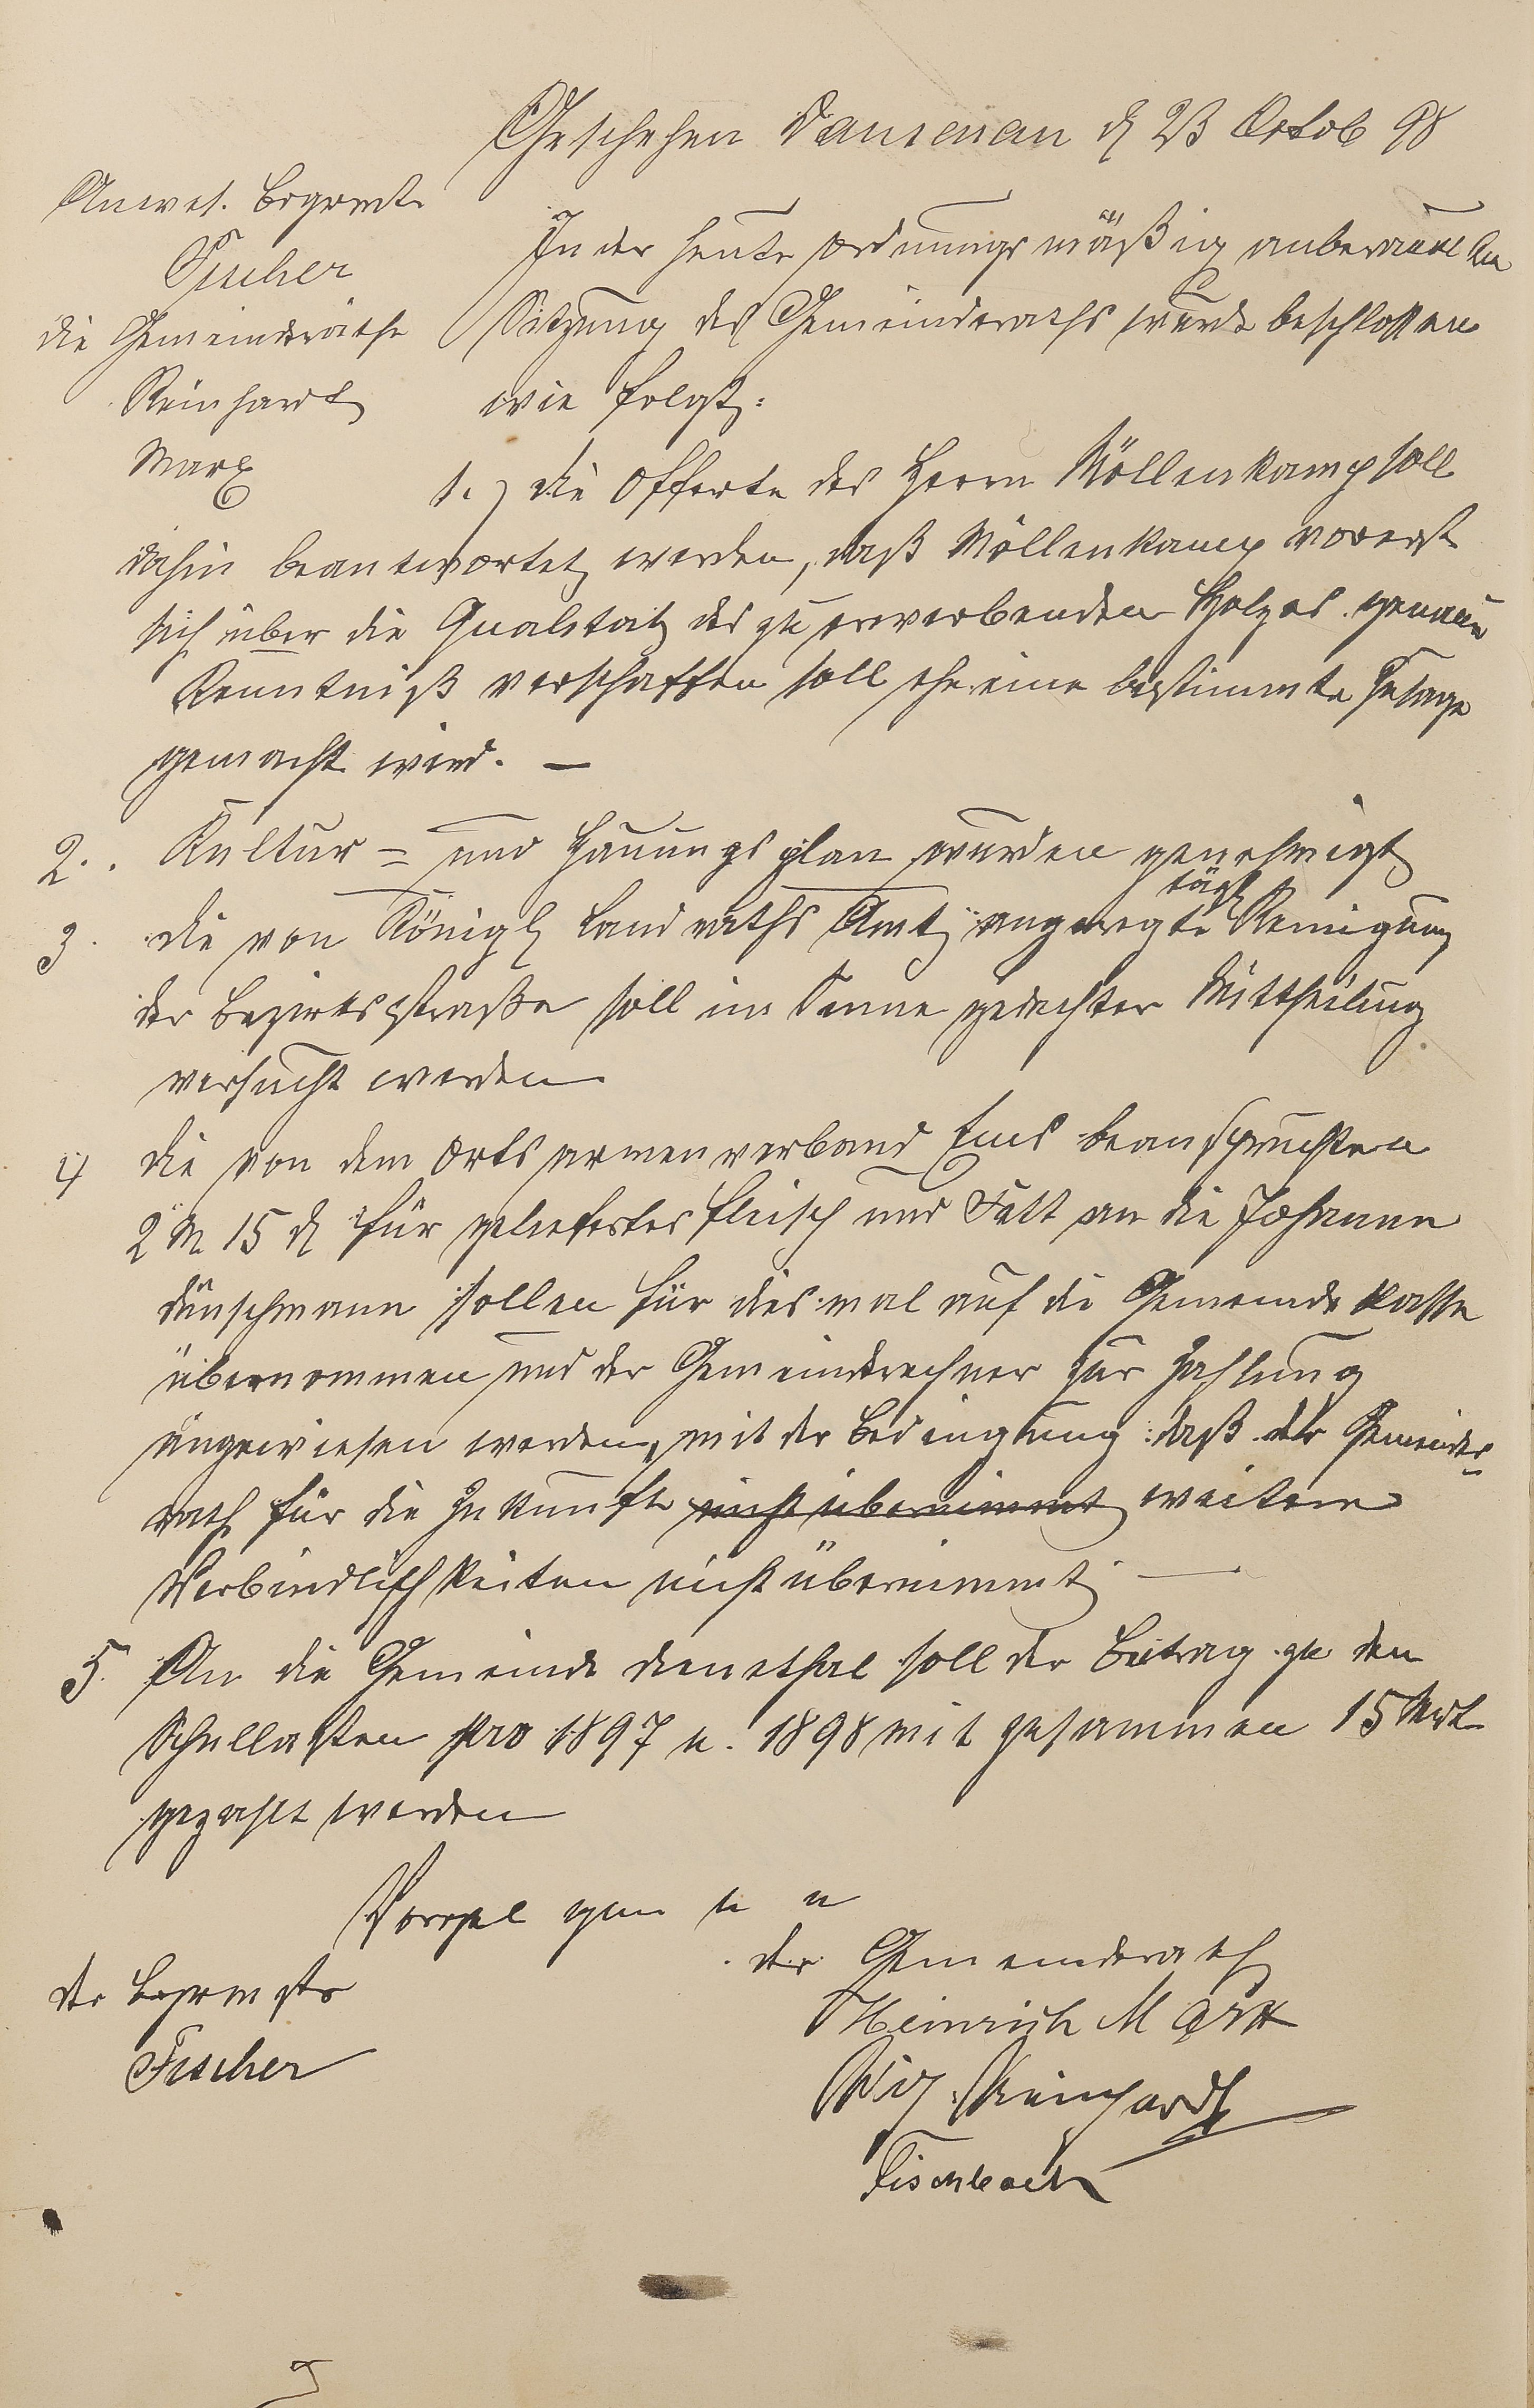 Geschehen Dausenau d 23 Octob 98
Anwes. Bürgermstr
Fischer
die Gemeinderäthe
Reinhardt
Marx
In der heute ordnungsmäßig anberaumten
Sitzung des Gemeinderaths wurde beschlossen
wie folgt:
1.) die Offerte des Herrn Möllenkamp soll
dahin beantwortet werden, daß Möllenkamp vorerst
sich über die Qualität des zu erwerbenden Holzes genaue
Kenntniß verschaffen soll ehe eine bestimmte Zusage
gemacht wird. —
2. Kultur= und Hauungsplan wurden genehmigt
3. die von Königl Landraths Amt angeregte tägl Reinigung
der Bezirksstraße soll im Sinne gedachter Mittheilung
versucht werden
4 die von dem Ortsarmenverband Ems beanspruchten
2 M 15 d für geliefertes Fleisch und Fett an die Johanna
Dünschmann sollen für dies mal auf die Gemeinde Kasse
übernommen und der Gemeinderechner zur Zahlung
angewiesen werden, mit der Bedingung: daß der Gemeinde=
rath für die Zukunft nicht übernimmt weitere
Verbindlichkeiten nicht übernimmt —
5. An die Gemeinde Dienethal soll der Beitrag zu den
Schullasten pro 1897 u. 1898 mit zusammen 15 Mrk
gezahlt werden
Vorgel gen u u
der Bürgermstr
Fischer
der Gemeinderath
Heinrich Marx
Wilh. Reinhardt
Fischbach